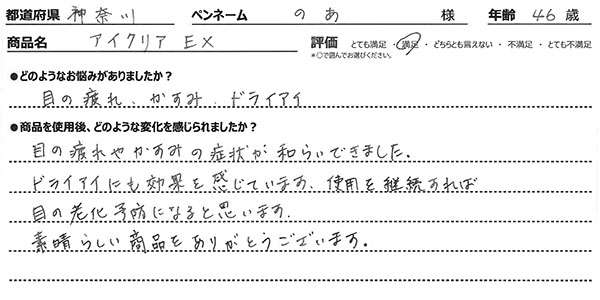 都道府県 神奈川 ペンネーム のあ 様 年齢 46 歳
商品名 アイクリア EX 評価 とても満足 ・ 満足 ・ どちらとも言えない ・ 不満足 ・ とても不満足
*○で囲んでお選びください。
●どのようなお悩みがありましたか？
目の疲れ、かすみ、ドライアイ
●商品を使用後、どのような変化を感じられましたか？
目の疲れやかすみの症状が和らいできました。
ドライアイにも効果を感じています、使用を継続すれば
目の老化予防になると思います。
素晴らしい商品をありがとうございます。